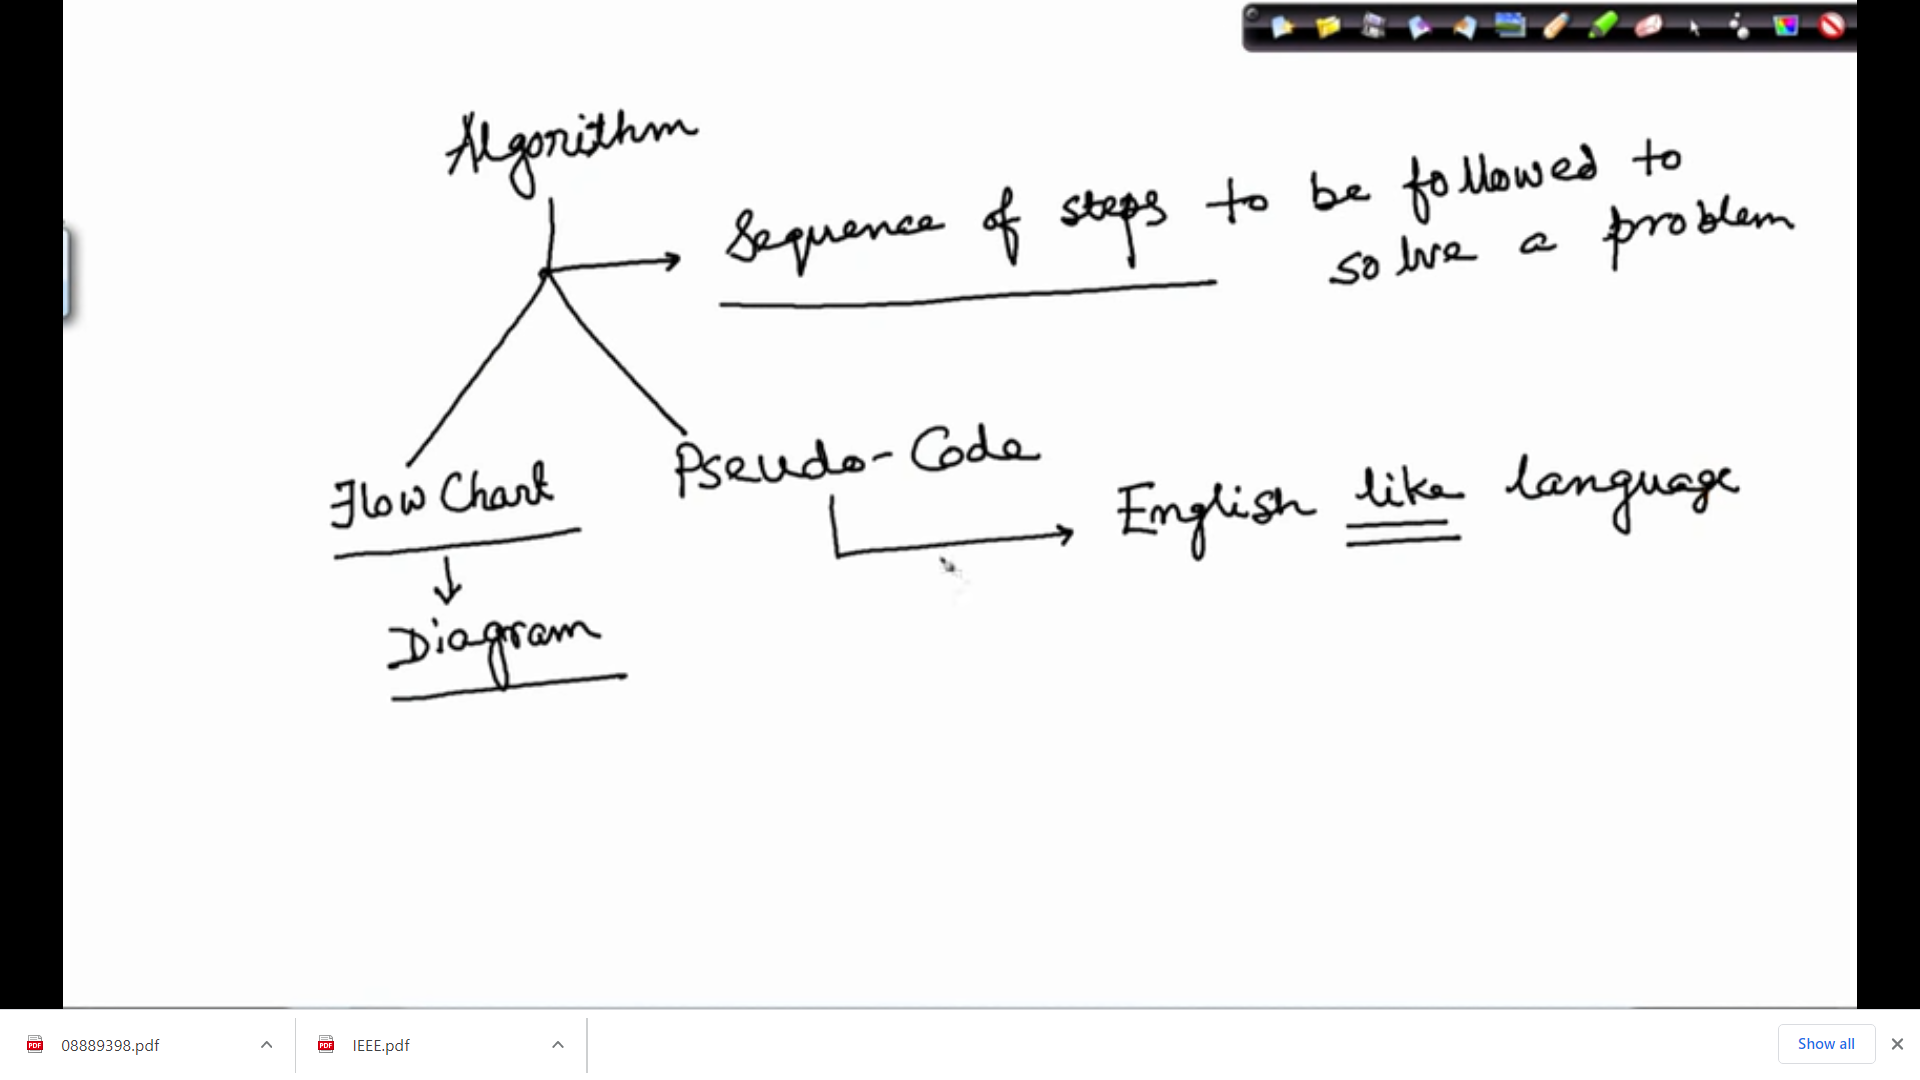 Algorithm
Sequence of steps to be followed to
solve a problem
Flow Chart
Pseudo-Code
English like language
Diagram
08889398.pdf
IEEE.pdf
Show all